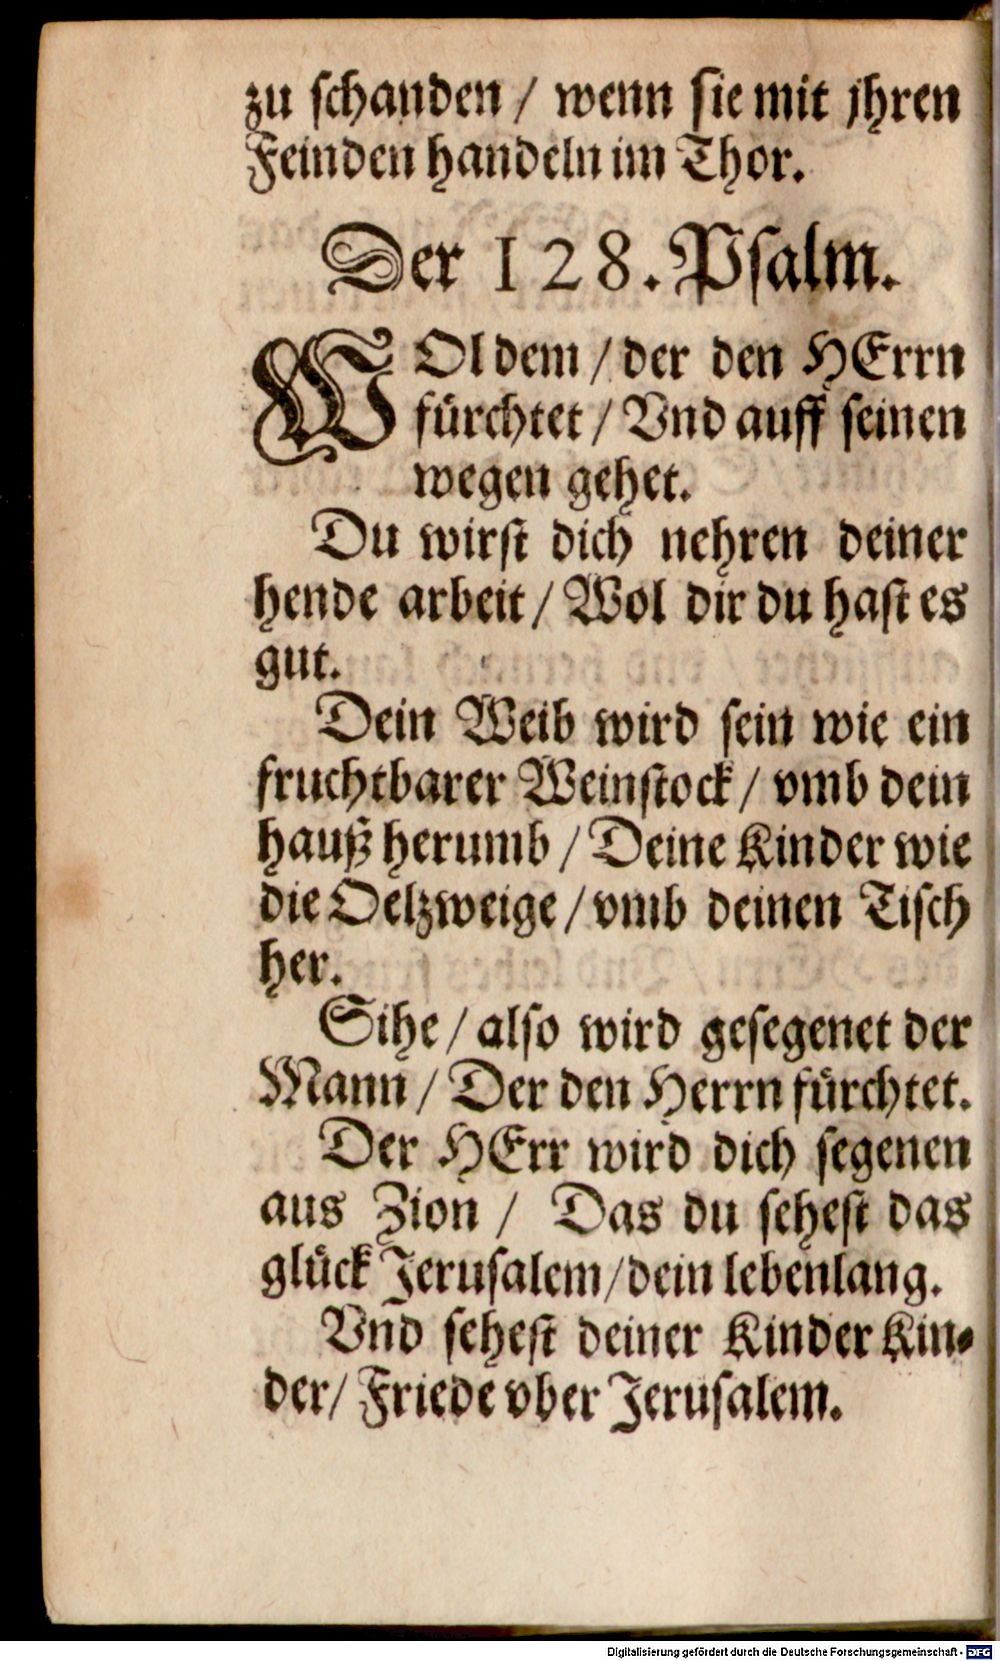 zu schanden / wenn sie mit jhren
Feinden handeln im Thor.
Der 128. Psalm.
WOl dem / der den HErrn
fürchtet / Vnd auff seinen
wegen gehet.
Du wirst dich nehren deiner
hende arbeit / Wol dir du hast es
gut.
Dein Weib wird sein wie ein
fruchtbarer Weinstock / vmb dein
hauß herumb / Deine Kinder wie
die Oelzweige / vmb deinen Tisch
her.
Sihe / also wird gesegenet der
Mann / Der den Herrn fürchtet.
Der HErr wird dich segenen
aus Zion / Das du sehest das
glück Jerusalem / dein lebenlang.
Vnd sehest deiner Kinder Kin-
der / Friede vber Jerusalem.
Digitalisierung gefördert durch die Deutsche Forschungsgemeinschaft - DFG